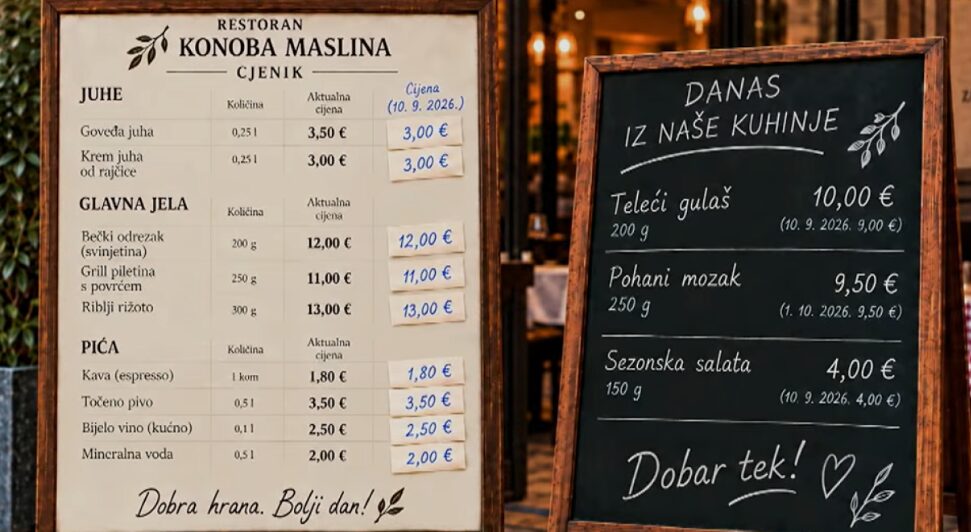 RESTORAN
KONOBA MASLINA
CJENIK
JUHE Količina Aktualna cijena Cijena (10. 9. 2026.)
Goveđa juha 0,25 l 3,50 € 3,00 €
Krem juha od rajčice 0,25 l 3,00 € 3,00 €
GLAVNA JELA Količina Aktualna cijena
Bečki odrezak (svinjetina) 200 g 12,00 € 12,00 €
Grill piletina s povrćem 250 g 11,00 € 11,00 €
Riblji rižoto 300 g 13,00 € 13,00 €
PIĆA Količina Aktualna cijena
Kava (espresso) 1 kom 1,80 € 1,80 €
Točeno pivo 0,5 l 3,50 € 3,50 €
Bijelo vino (kućno) 0,1 l 2,50 € 2,50 €
Mineralna voda 0,5 l 2,00 € 2,00 €
Dobra hrana. Bolji dan!
DANAS
IZ NAŠE KUHINJE
Teleći gulaš 10,00 €
200 g (10. 9. 2026. 9,00 €)
Pohani mozak 9,50 €
250 g (1. 10. 2026. 9,50 €)
Sezonska salata 4,00 €
150 g (10. 9. 2026. 4,00 €)
Dobar tek!